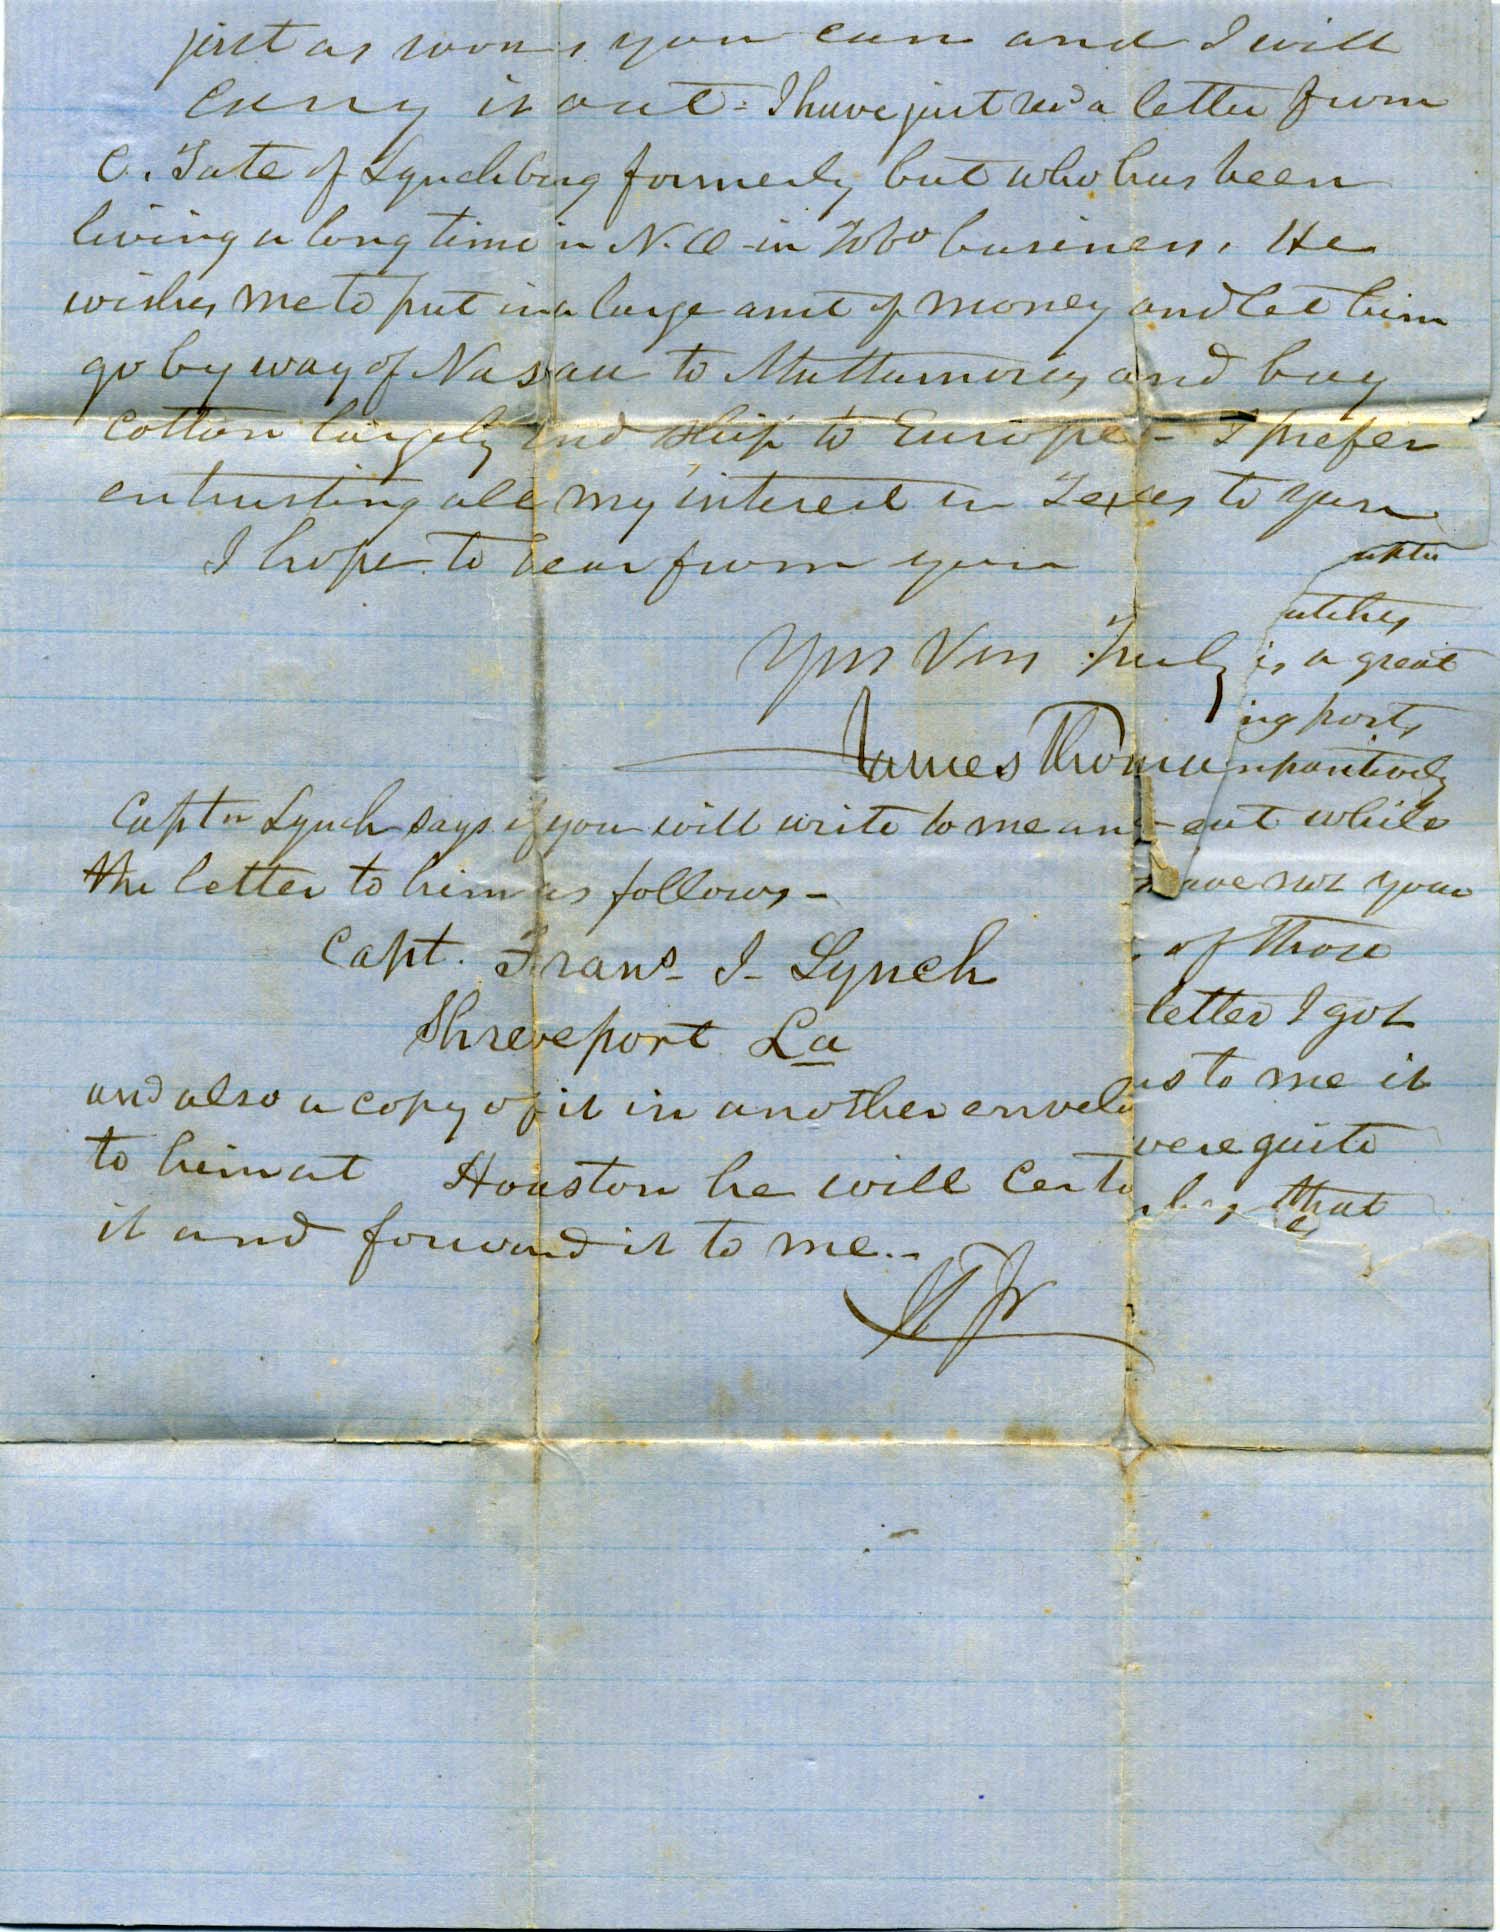 just as soon as you can and I will
carry it out - I have just recd a letter from
C. Tate of Lynchburg formerly but who has been
living a long time in N.C - in Tobo business. He
wishes me to put in a large amt of money and let him
go by way of Nassau to Mattamoras and buy
cotton largely and ship to Europe - I prefer
entrusting all my interest in Texas to you
I hope to hear from you
Yrs Very Truly
James Thoma
Captn Lynch says if you will write to me an
the letter to him as follows -
Capt. Frans - J - Lynch
Shreveport La
and also a copy of it in another envelo
to him at Houston he will certa
it and forward it to me. -
JT Jr
atches
is a great
ing ports
mparitively
ent while
have not your
of those
letter I got
us to me it
were quite
that